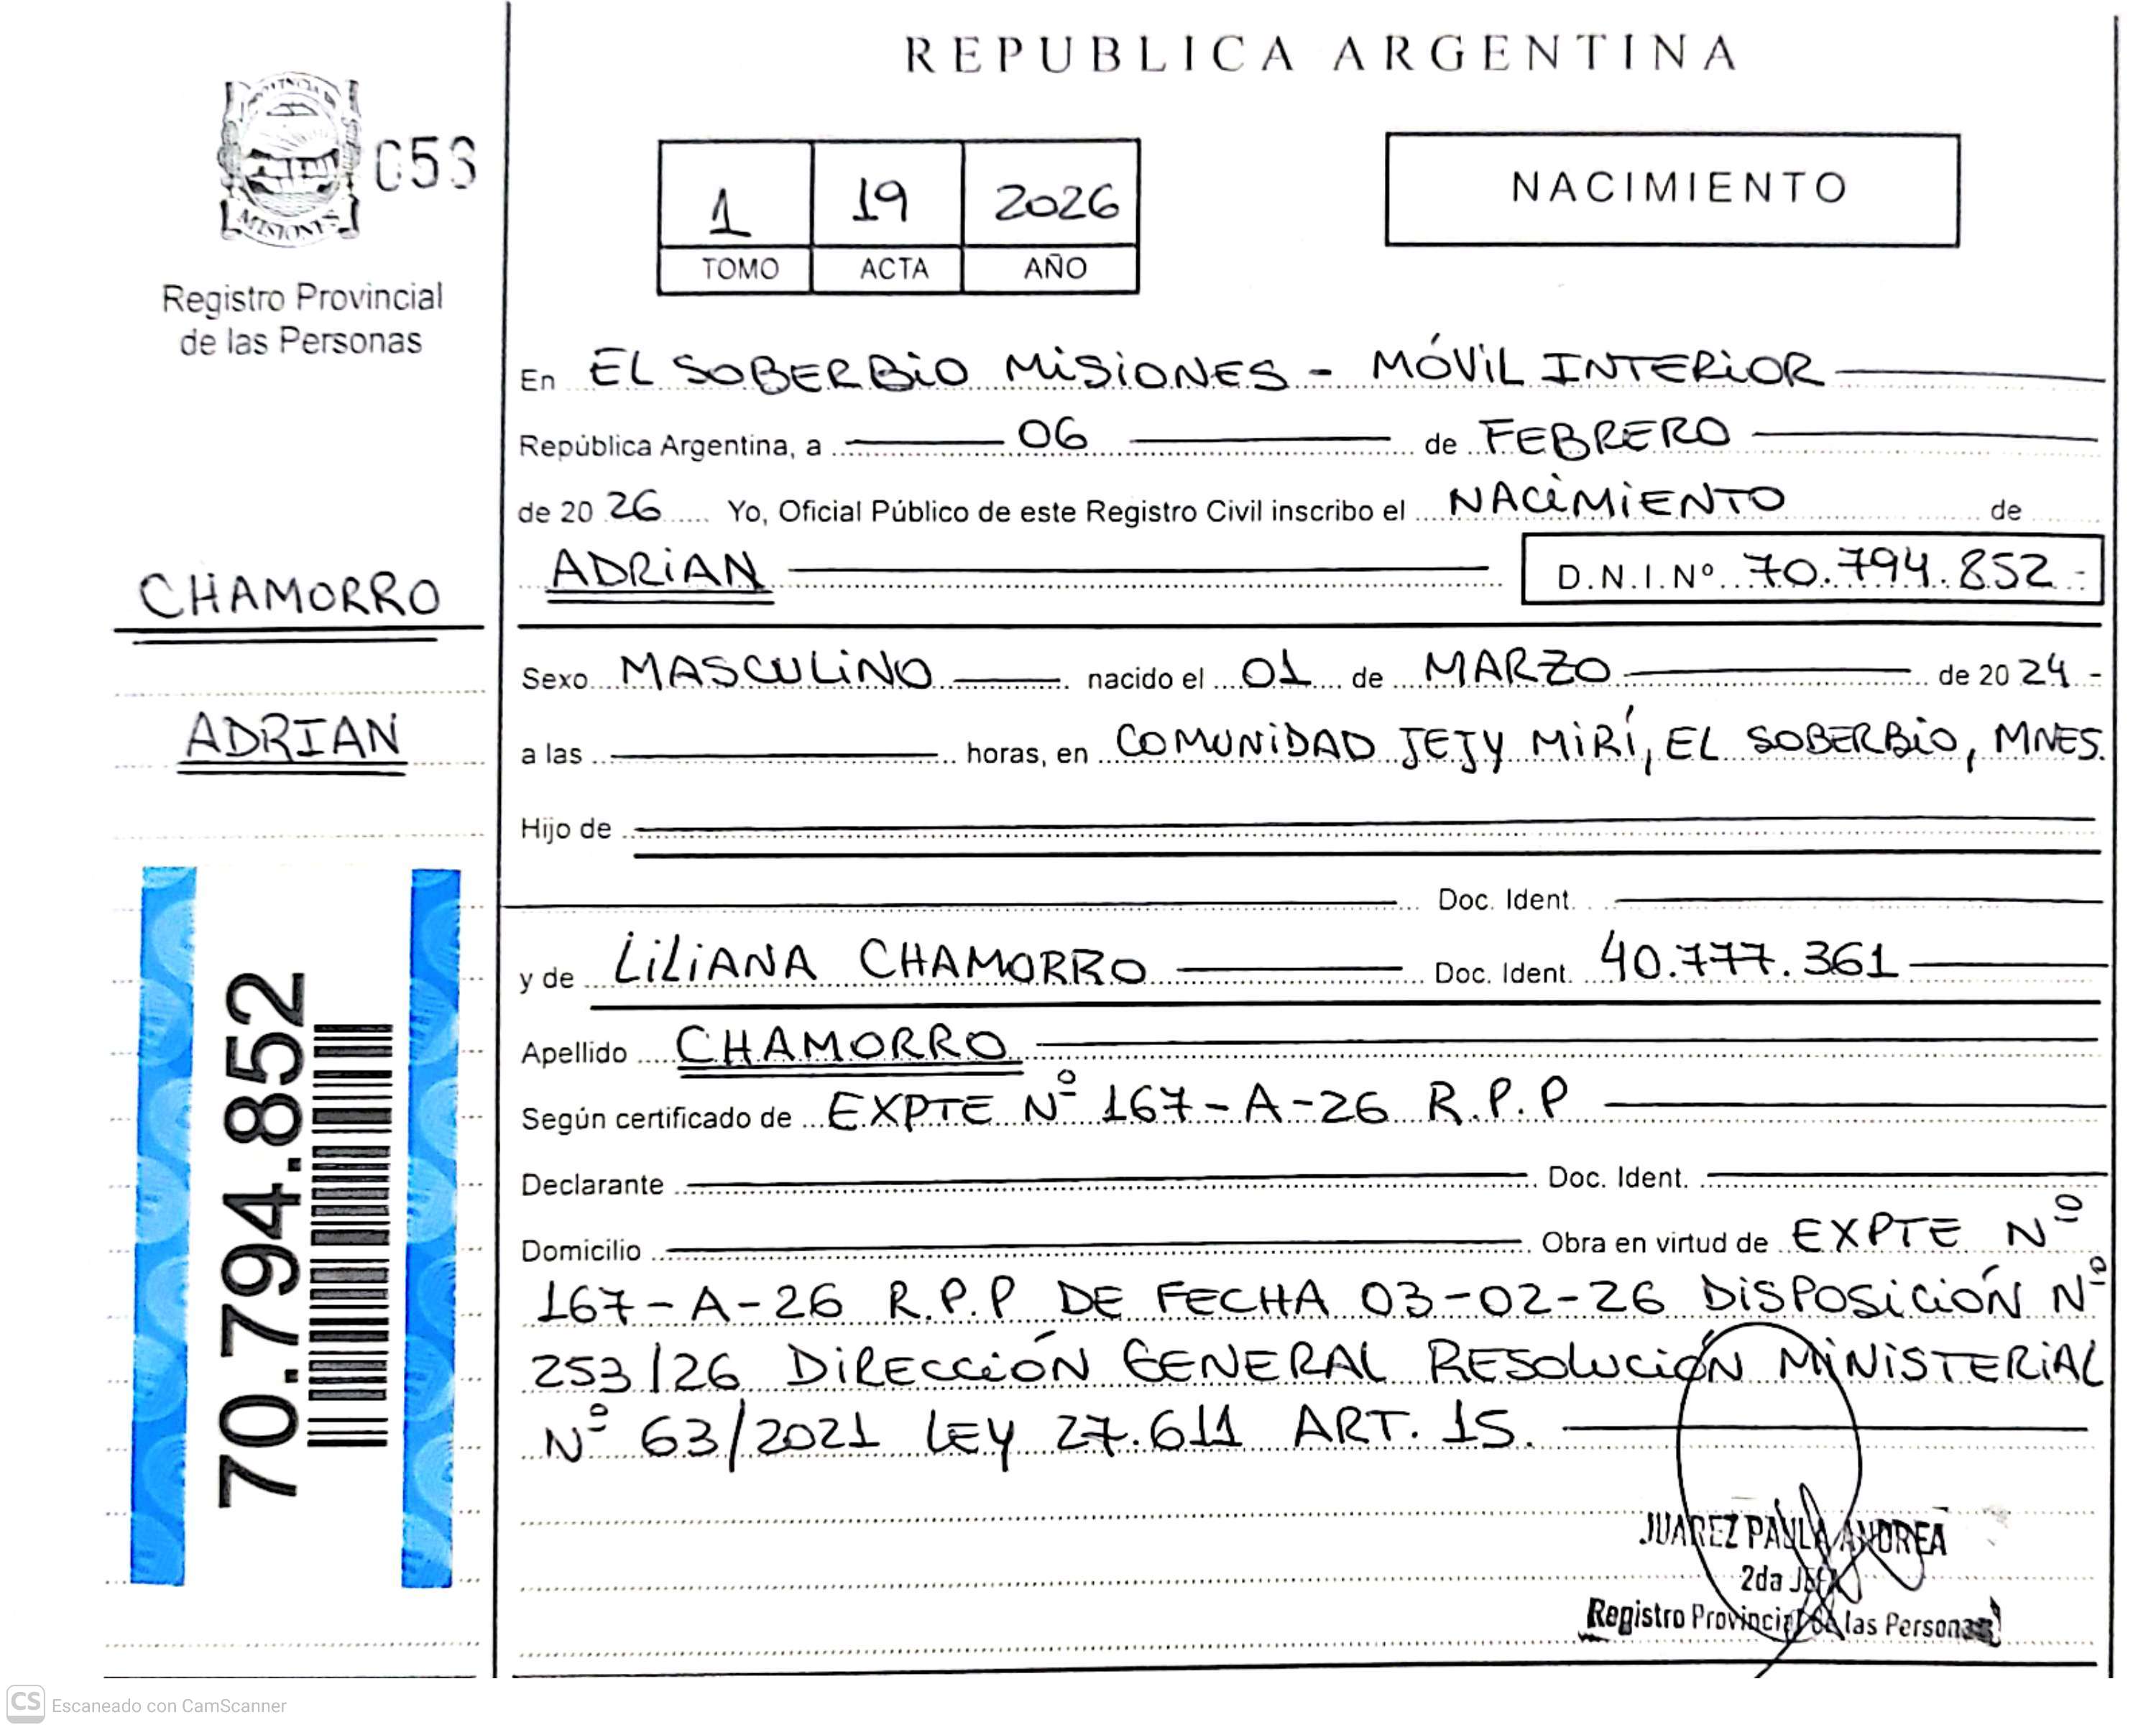 REPUBLICA ARGENTINA
PROVINCIA DE
MISIONES
053
Registro Provincial
de las Personas
1 19 2026
TOMO ACTA AÑO
NACIMIENTO
En EL SOBERBIO MISIONES - MÓVIL INTERIOR
República Argentina, a 06 de FEBRERO
de 20 26 Yo, Oficial Público de este Registro Civil inscribo el NACIMIENTO de
ADRIAN D.N.I. Nº 70.794.852 -
CHAMORRO
ADRIAN
Sexo MASCULINO nacido el 01 de MARZO de 20 24 -
a las horas, en COMUNIDAD JEJY MIRÍ, EL SOBERBIO, MNES.
Hijo de
Doc. Ident.
y de LILIANA CHAMORRO Doc. Ident. 40.777.361
Apellido CHAMORRO
Según certificado de EXPTE Nº 167-A-26 R.P.P
Declarante Doc. Ident.
Domicilio Obra en virtud de EXPTE Nº
167-A-26 R.P.P DE FECHA 03-02-26 DISPOSICIÓN Nº
253/26 DIRECCIÓN GENERAL RESOLUCIÓN MINISTERIAL
Nº 63/2021 LEY 27.611 ART. 15.
70.794.852
JUAREZ PAULA ANDREA
2da JEFA
Registro Provincial de las Personas
CS Escaneado con CamScanner